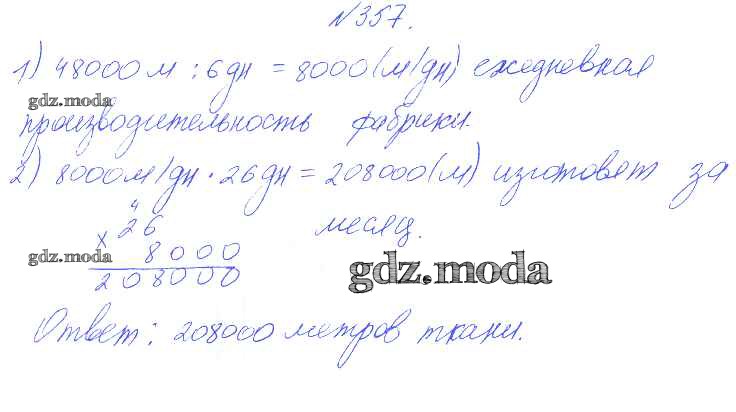 №357.
1) 48000 м : 6 дн = 8000 (м/дн) ежедневная
gdz.moda
производительность фабрики.
2) 8000 м/дн · 26 дн = 208000 (м) изготовят за
месяц.
4
× 26
8000
gdz.moda
208000
gdz.moda
Ответ: 208000 метров ткани.